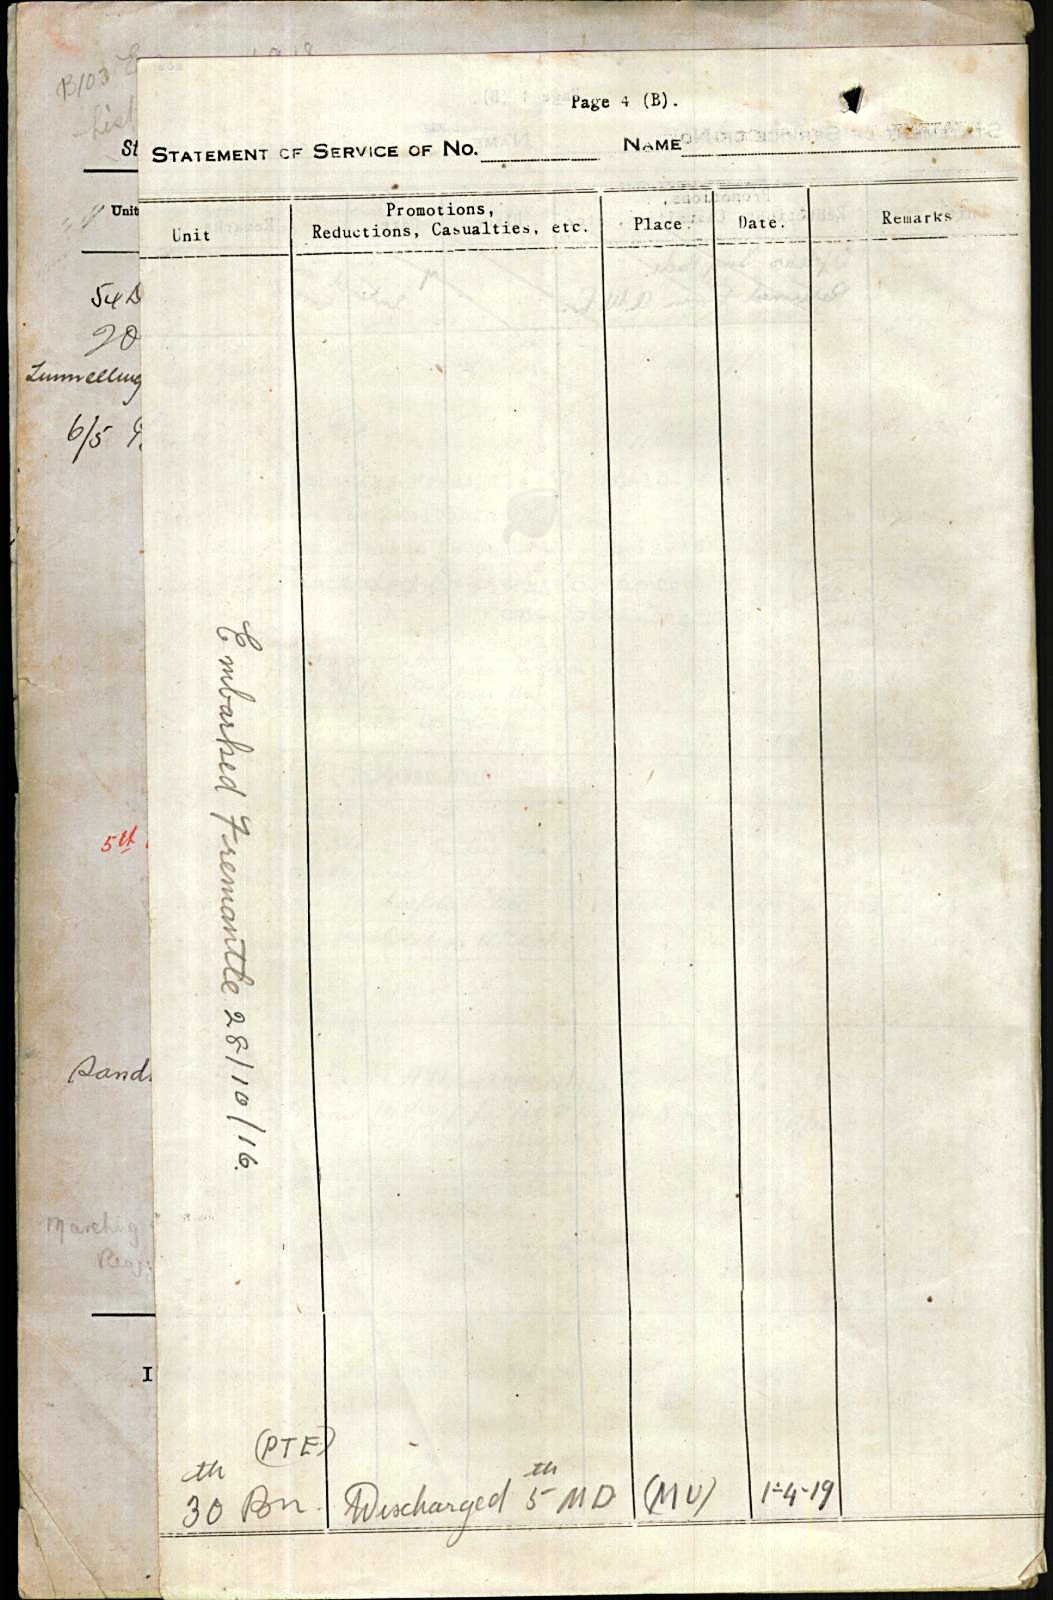 B/103
List
Page 4 (B).
St
STATEMENT OF SERVICE OF No. NAME
Unit
Unit
Promotions,
Reductions, Casualties, etc.
Place.
Date.
Remarks
54 D
20
Tunnelling
6/5
Embarked Fremantle 28/10/16.
5th
Sands
Marching
I
(PTE)
30th Bn. Discharged 5th MD (MU) 1-4-19